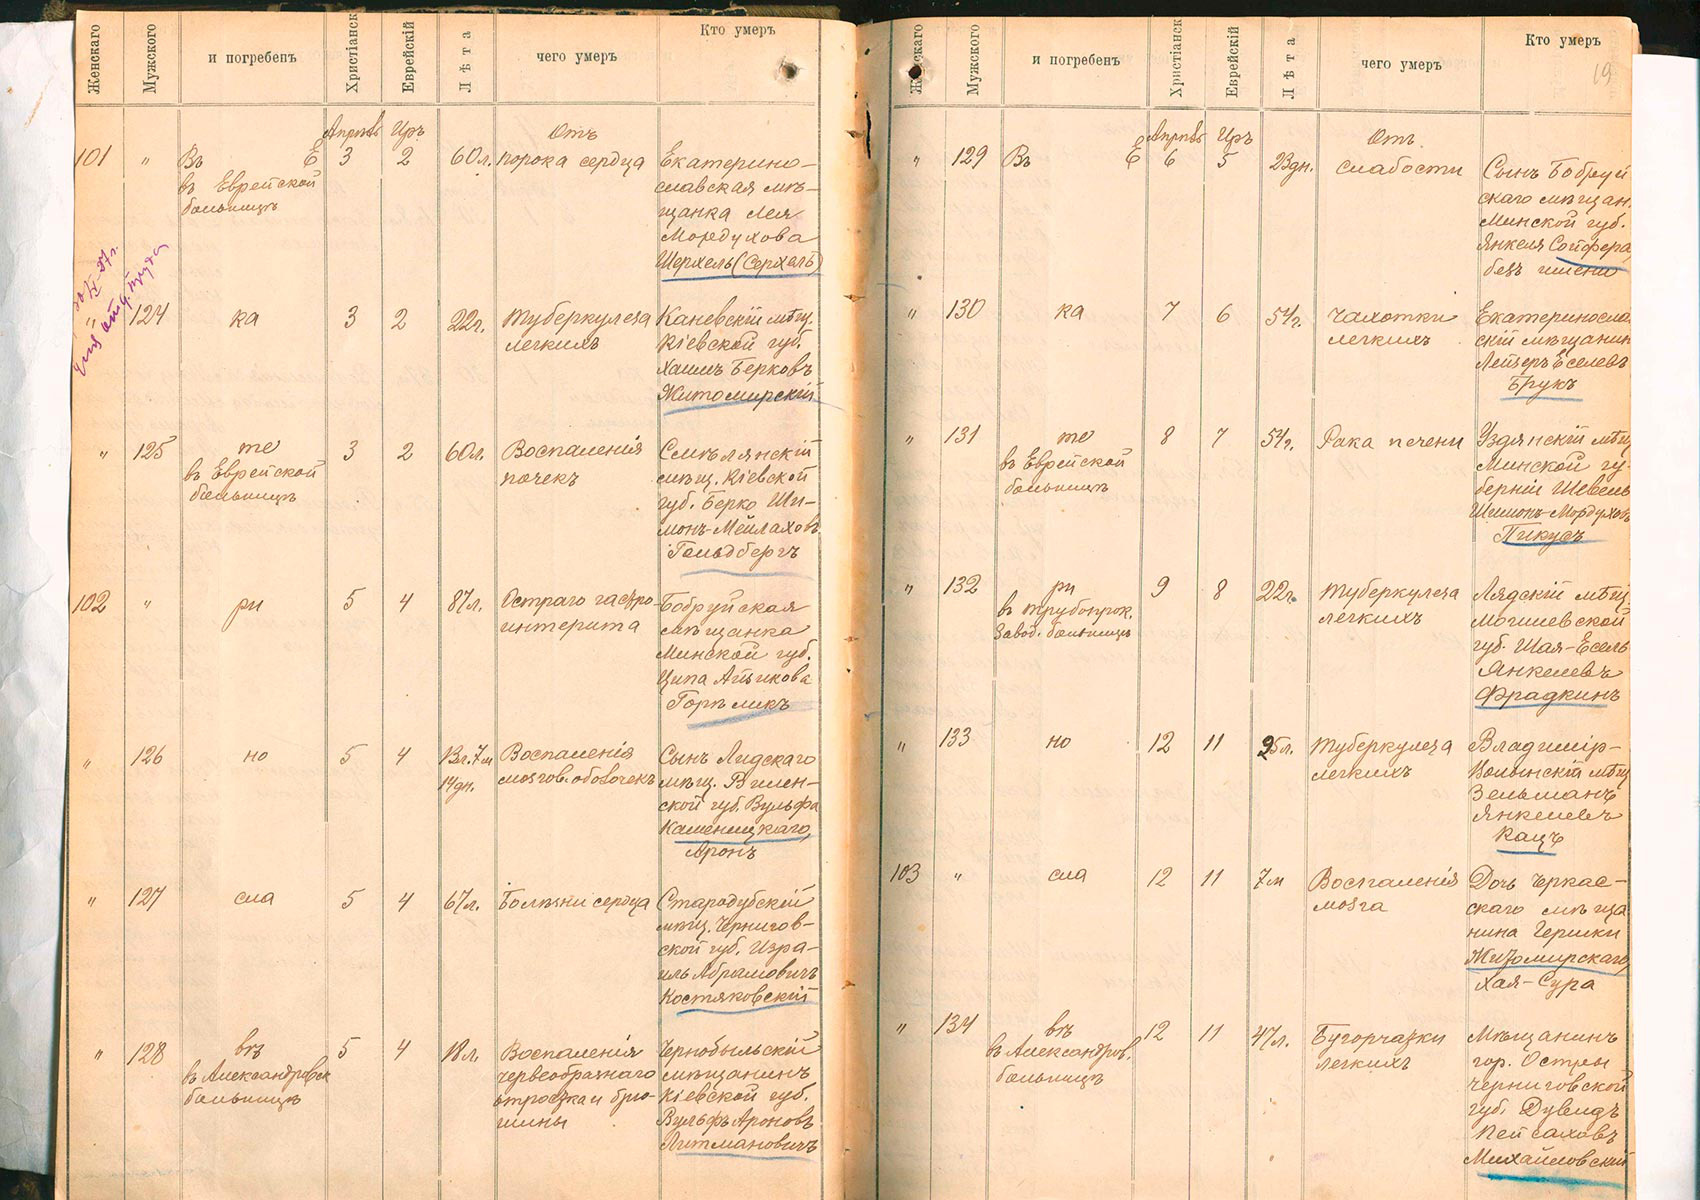 Женскаго
Мужского
и погребенъ
Христіанск
Еврейскій
Лѣта
чего умеръ
Кто умеръ
Апрѣль Иръ Отъ
101 " Въ Е 3 2 60л. порока сердца Екатерино-
въ Еврейской славская мѣ-
больницѣ щанка Лея
Мордухова
Шерхель (Серхель)
124 ка 3 2 22г. Туберкулеза Каневскій мѣщ.
легкихъ Кіевской губ.
Хаимъ Берковъ
Житомирскій
" 125 те 3 2 60л. Воспаленія Смѣлянскій
въ Еврейской почекъ мѣщ. Кіевской
больницѣ губ. Берко Ши-
монъ-Мейлаховъ
Гольдбергъ
102 " ри 5 4 87л. Остраго гастро- Бобруйская
интерита мѣщанка
Минской губ.
Ципа Айзикова
Горѣликъ
" 126 но 5 4 13л.7м Воспаленія Сынъ Лидскаго
14дн. мозгов. оболочекъ мѣщ. Вилен-
ской губ. Вульфа
Каменецкаго,
Аронъ
" 127 сла 5 4 67л. Болѣзни сердца Стародубскій
мѣщ. Чернигов-
ской губ. Изра-
иль Абрамовичъ
Костяковскій
" 128 въ 5 4 18л. Воспаленія Чернобыльскій
въ Александровск червеобразнаго мѣщанинъ
больницѣ отростка и брю- Кіевской губ.
шины Вульфъ Ароновъ
Литмановичъ
Женскаго
Мужского
и погребенъ
Христіанск
Еврейскій
Лѣта
чего умеръ
Кто умеръ
19
Апрѣль Иръ Отъ
" 129 Въ Е 6 5 23дн. слабости Сынъ Бобруй
скаго мѣщан.
Минской губ.
Янкеля Сойфера,
безъ имени
" 130 ка 7 6 54г. Чахотки Екатеринослав
легкихъ скій мѣщанин
Лейзеръ Еселевъ
Брукъ
" 131 те 8 7 54г. Рака печени Уздянскій мѣщ
въ Еврейской Минской гу-
больницѣ берніи Шевель
Шимонъ-Мордуховъ
Пикусъ
" 132 ри 9 8 22г. Туберкулеза Лядскій мѣщ
въ трубопрок. легкихъ Могилевской
завод. больницѣ губ. Шая-Есель
Янкелевъ
Фрадкинъ
" 133 но 12 11 25л. Туберкулеза Владимір-
легкихъ Волынскій мѣщ
Зельманъ
Янкелевъ
Кацъ
103 " сла 12 11 7м Воспаленія Дочь Черкас-
мозга скаго мѣща
нина Гершки
Житомирскаго,
Хая-Сура
" 134 въ 12 11 47л. Бугорчатки Мѣщанинъ
въ Александров. легкихъ гор. Остры
больницѣ Черниговской
губ. Дувидъ
Пейсаховъ
Михайловский